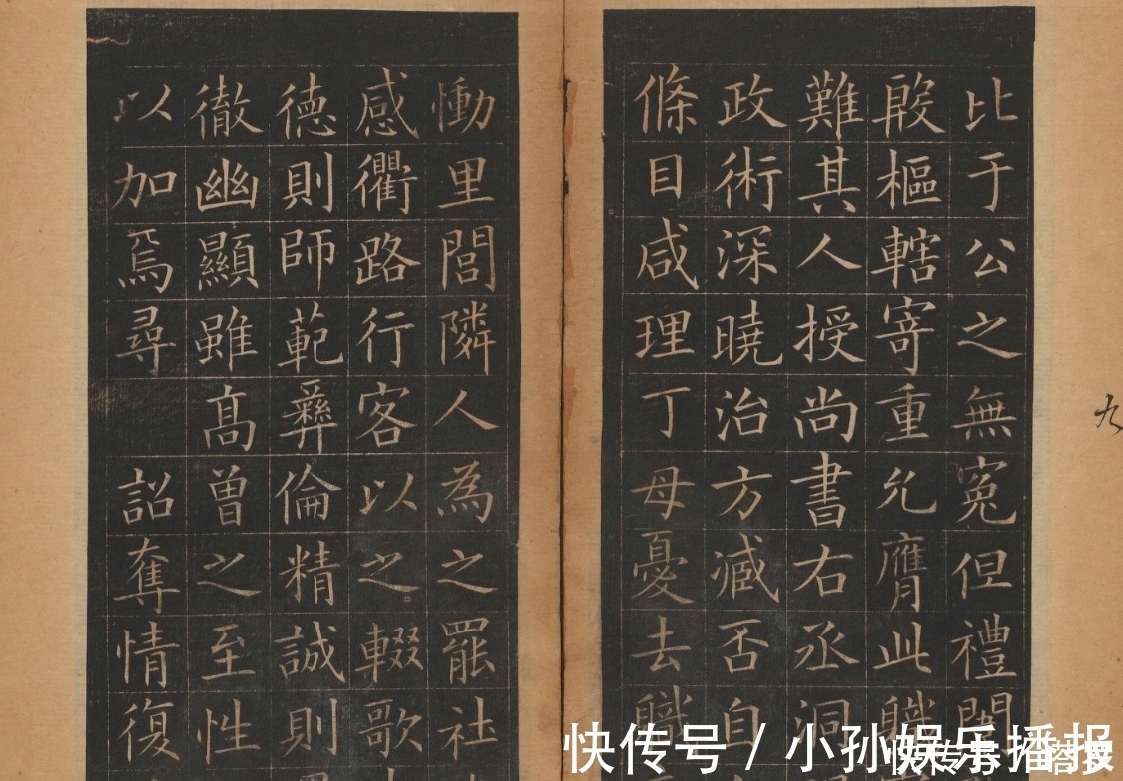 比于公之無冤但禮闈
殷樞轄寄重允膺此職
難其人授尚書右丞洞
政術深曉治方臧否自
條目咸理丁母憂去職
慟里閭隣人為之罷社
感衢路行客以之輟歌
德則師範彝倫精誠則
徹幽顯雖高曾之至性
以加焉尋詔奪情復
九
快传号 / 小孙娱乐播报
快传号